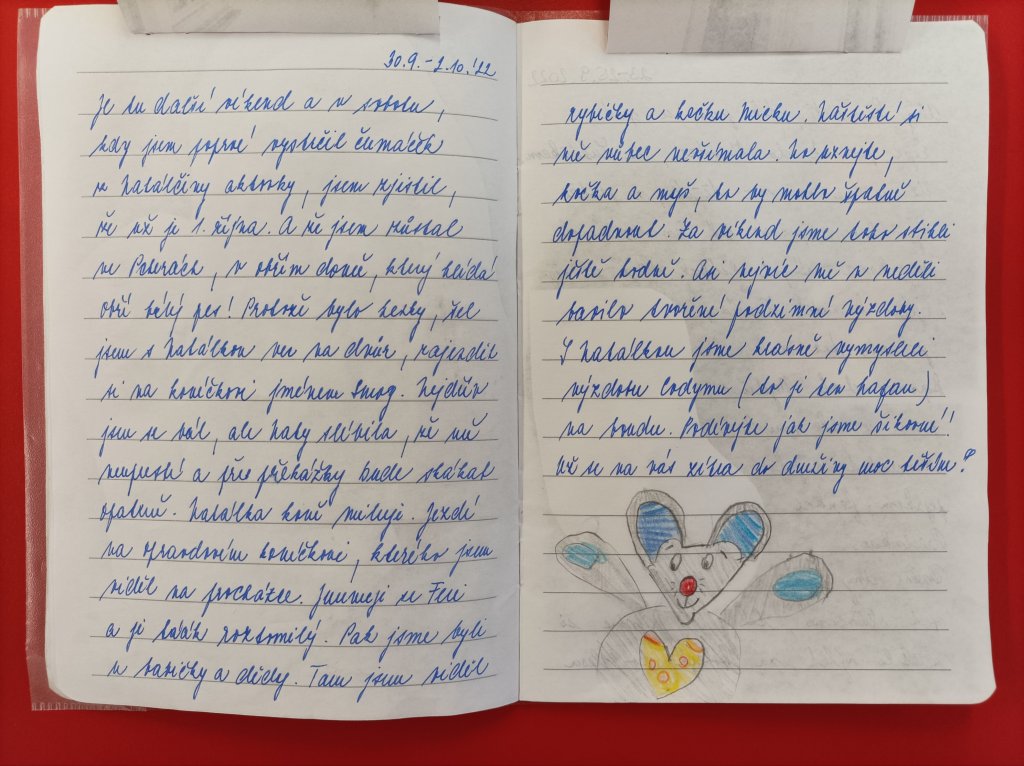 30.9.-2.10.'22
Je tu další víkend a v sobotu,
kdy jsem poprvé vystrčil čumáček
z Natálčiny aktovky, jsem zjistil,
že už je 1. října. A že jsem zůstal
ve Peterách, v obřím domě, který hlídá
obří bílý pes! Protože bylo hezky, šel
jsem s Natálkou ven na dvůr, zajezdil
si na koníčkovi jménem Smog. Nejdřív
jsem se bál, ale Naty slíbila, že mě
nepustí a přes překážky bude skákat
opatrně. Natálka koně miluje. Jezdí
na opravdovém koníčkovi, kterého jsem
viděl na procházce. Jmenuje se Feri
a je tááák roztomilý. Pak jsme byli
u babičky a dědy. Tam jsem viděl
rybičky a kočku Micku. Naštěstí si
mě vůbec nevšímala. No uznejte,
kočka a myš, to by mohlo špatně
dopadnout. Za víkend jsme toho stihli
ještě hodně. Asi nejvíc mě v neděli
bavilo tvoření podzimní výzdoby.
S Natálkou jsme krásně vymysleli
výzdobu Codymu (to je ten hafan)
na boudu. Podívejte jak jsme šikovné!
Už se na vás zítra do družiny moc těším!